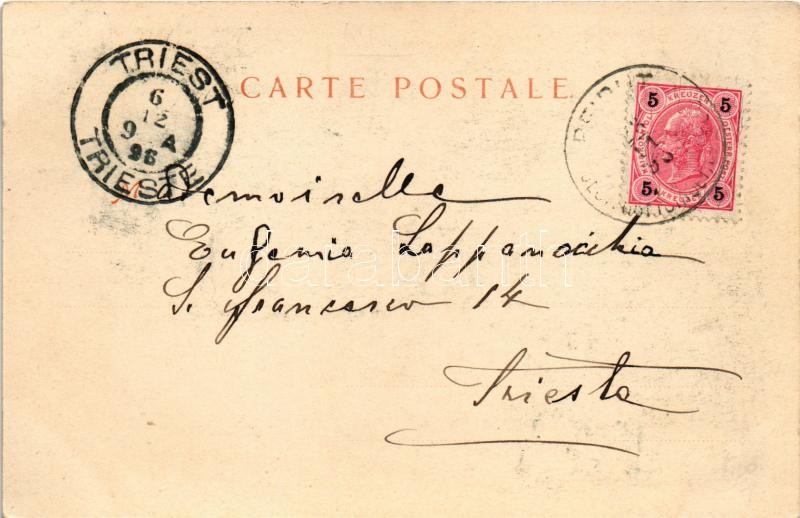 TRIEST
6
12
9 A
96
TRIESTE
CARTE POSTALE
5 KREUZER 5
5 5
Mademoiselle
Eugenia Zappanocchia
S. Francesco 14
Trieste
darabanth